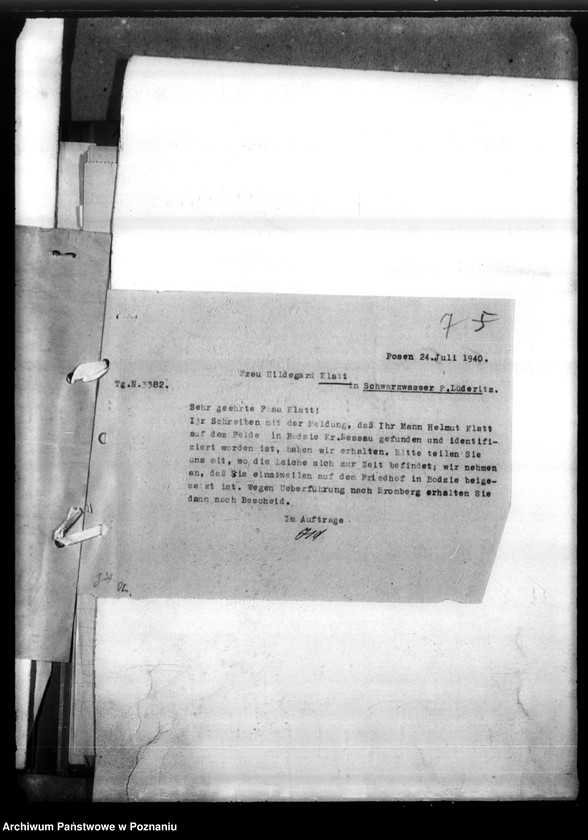 75
Posen 24.Juli 1940.
Frau Hildegard Klatt
Tg.N.3382.
in Schwarzwasser P.Lüderitz.
Sehr geehrte Frau Klatt!
Ihr Schreiben mit der Meldung, daß Ihr Mann Helmut Klatt
auf dem Felde in Bodzie Kr.Nessau gefunden und identifi-
ziert worden ist, haben wir erhalten. Bitte teilen Sie
uns mit, wo die Leiche sich zur Zeit befindet; wir nehmen
an, daß sie einstweilen auf dem Friedhof in Bodzie beige-
setzt ist. Wegen Ueberführung nach Bromberg erhalten Sie
dann noch Bescheid.
Im Auftrage
Archiwum Państwowe w Poznaniu